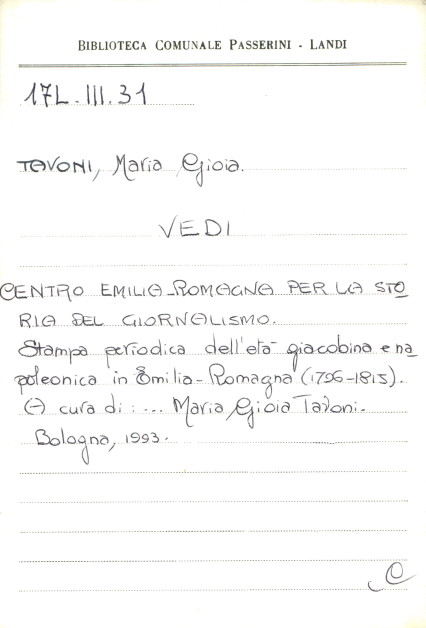 BIBLIOTECA COMUNALE PASSERINI - LANDI
17L.III.31
TAVONI, Maria Gioia.
VEDI
CENTRO EMILIA-ROMAGNA PER LA STO
RIA DEL GIORNALISMO.
Stampa periodica dell'età giacobina e na
poleonica in Emilia-Romagna (1796-1815).
(A) cura di: ... Maria Gioia Tavoni.
Bologna, 1993.
C